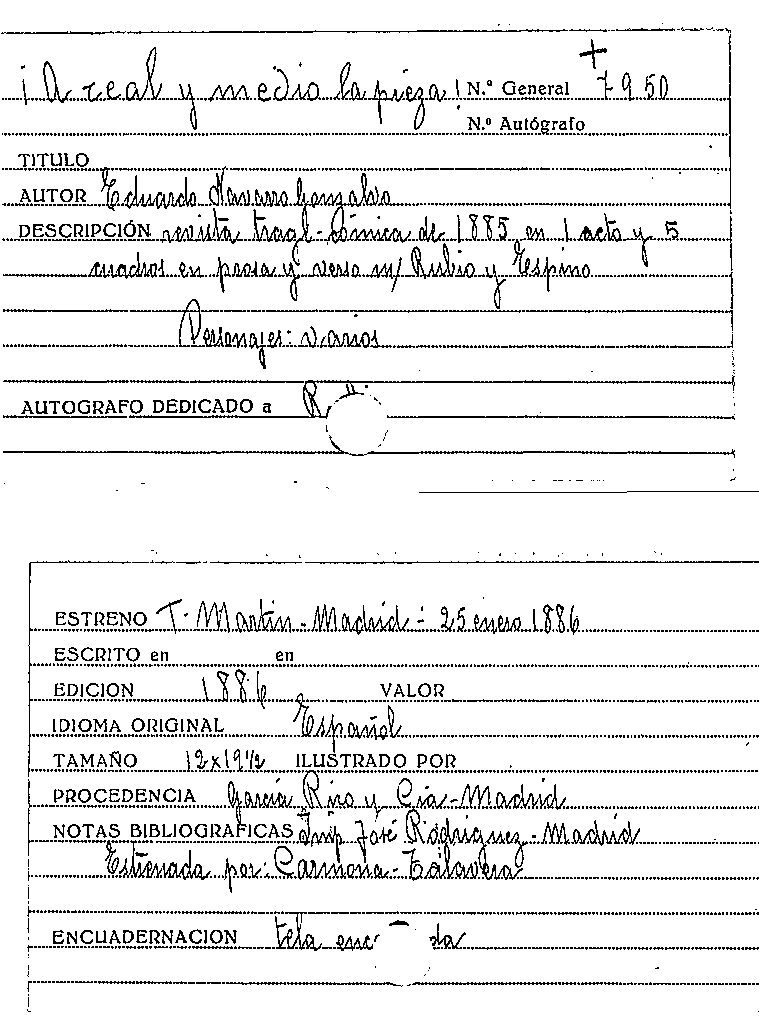 +
¡A real y medio la pieza! N.º General 7950
N.º Autógrafo
TITULO
AUTOR Eduardo Navarro Gonzalvo
DESCRIPCIÓN revista tragi-cómica de 1885 en 1 acto y 5
cuadros en prosa y verso m/ Rubio y Espino
Personajes: varios
AUTOGRAFO DEDICADO a
ESTRENO T. Martín - Madrid - 25 enero 1886
ESCRITO en en
EDICION 1886 VALOR
IDIOMA ORIGINAL Español
TAMAÑO 12x19½ ILUSTRADO POR
PROCEDENCIA García Rico y Cia - Madrid
NOTAS BIBLIOGRAFICAS Imp José Rodríguez - Madrid
Estrenada por: Carmona - Talavera
ENCUADERNACION tela